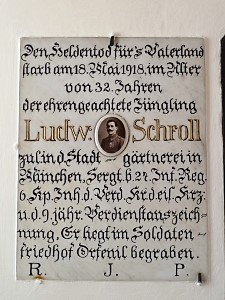 Den Heldentod für's Vaterland
starb am 18. Mai 1918, im Alter
von 32 Jahren
der ehrengeachtete Jüngling
Ludw. Schroll
zul. in d. Stadt gärtnerei in
München, Sergt. b. 27. Inf. Reg.
6. Kp. Inh. d. Verd. Kr. d. eis. Krz.
u. d. 9. jähr. Verdienstauszeich-
nung. Er liegt im Soldaten-
friedhof Orfenil begraben.
R. J. P.